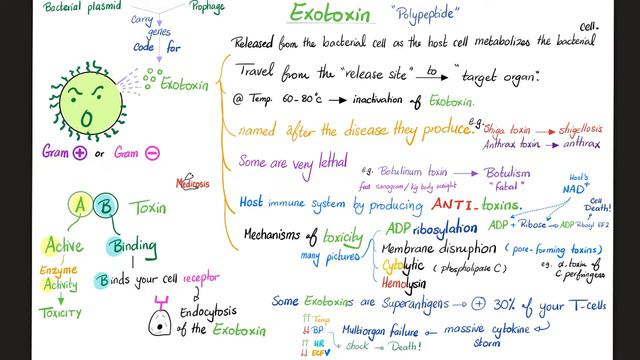 Bacterial plasmid
Prophage
Carry genes
Code for
Exotoxin
Gram + or Gram -
Medicosis
A B Toxin
Active
Enzyme
Activity
TOXICITY
Binding
Binds your cell receptor
Endocytosis
of the Exotoxin
Exotoxin "Polypeptide"
Released from the bacterial cell as the host cell metabolizes the bacterial cell.
Travel from the "release site" to "target organ".
@ Temp. 60-80°C → inactivation of Exotoxin.
named after the disease they produce. e.g.
Shiga toxin → shigellosis
Anthrax toxin → anthrax
Some are very lethal
e.g. Botulinum toxin → Botulism
few nanogram/kg body weight "fatal"
Host immune system by producing ANTI-toxins.
Host's
NAD+
Cell Death!
ADP + Ribose → ADP Ribosyl EF2
Mechanisms of toxicity
many pictures
ADP ribosylation
Membrane disruption (pore-forming toxins)
Cytolytic (phospholipase C)
e.g. α.toxin of
C. perfringens
Hemolysin
Some Exotoxins are Superantigens → + 30% of your T-cells
massive cytokine storm
Multiorgan failure
↑↑ Temp
↓↓ BP
↑↑ HR
↓↓ ECFV
shock → Death!